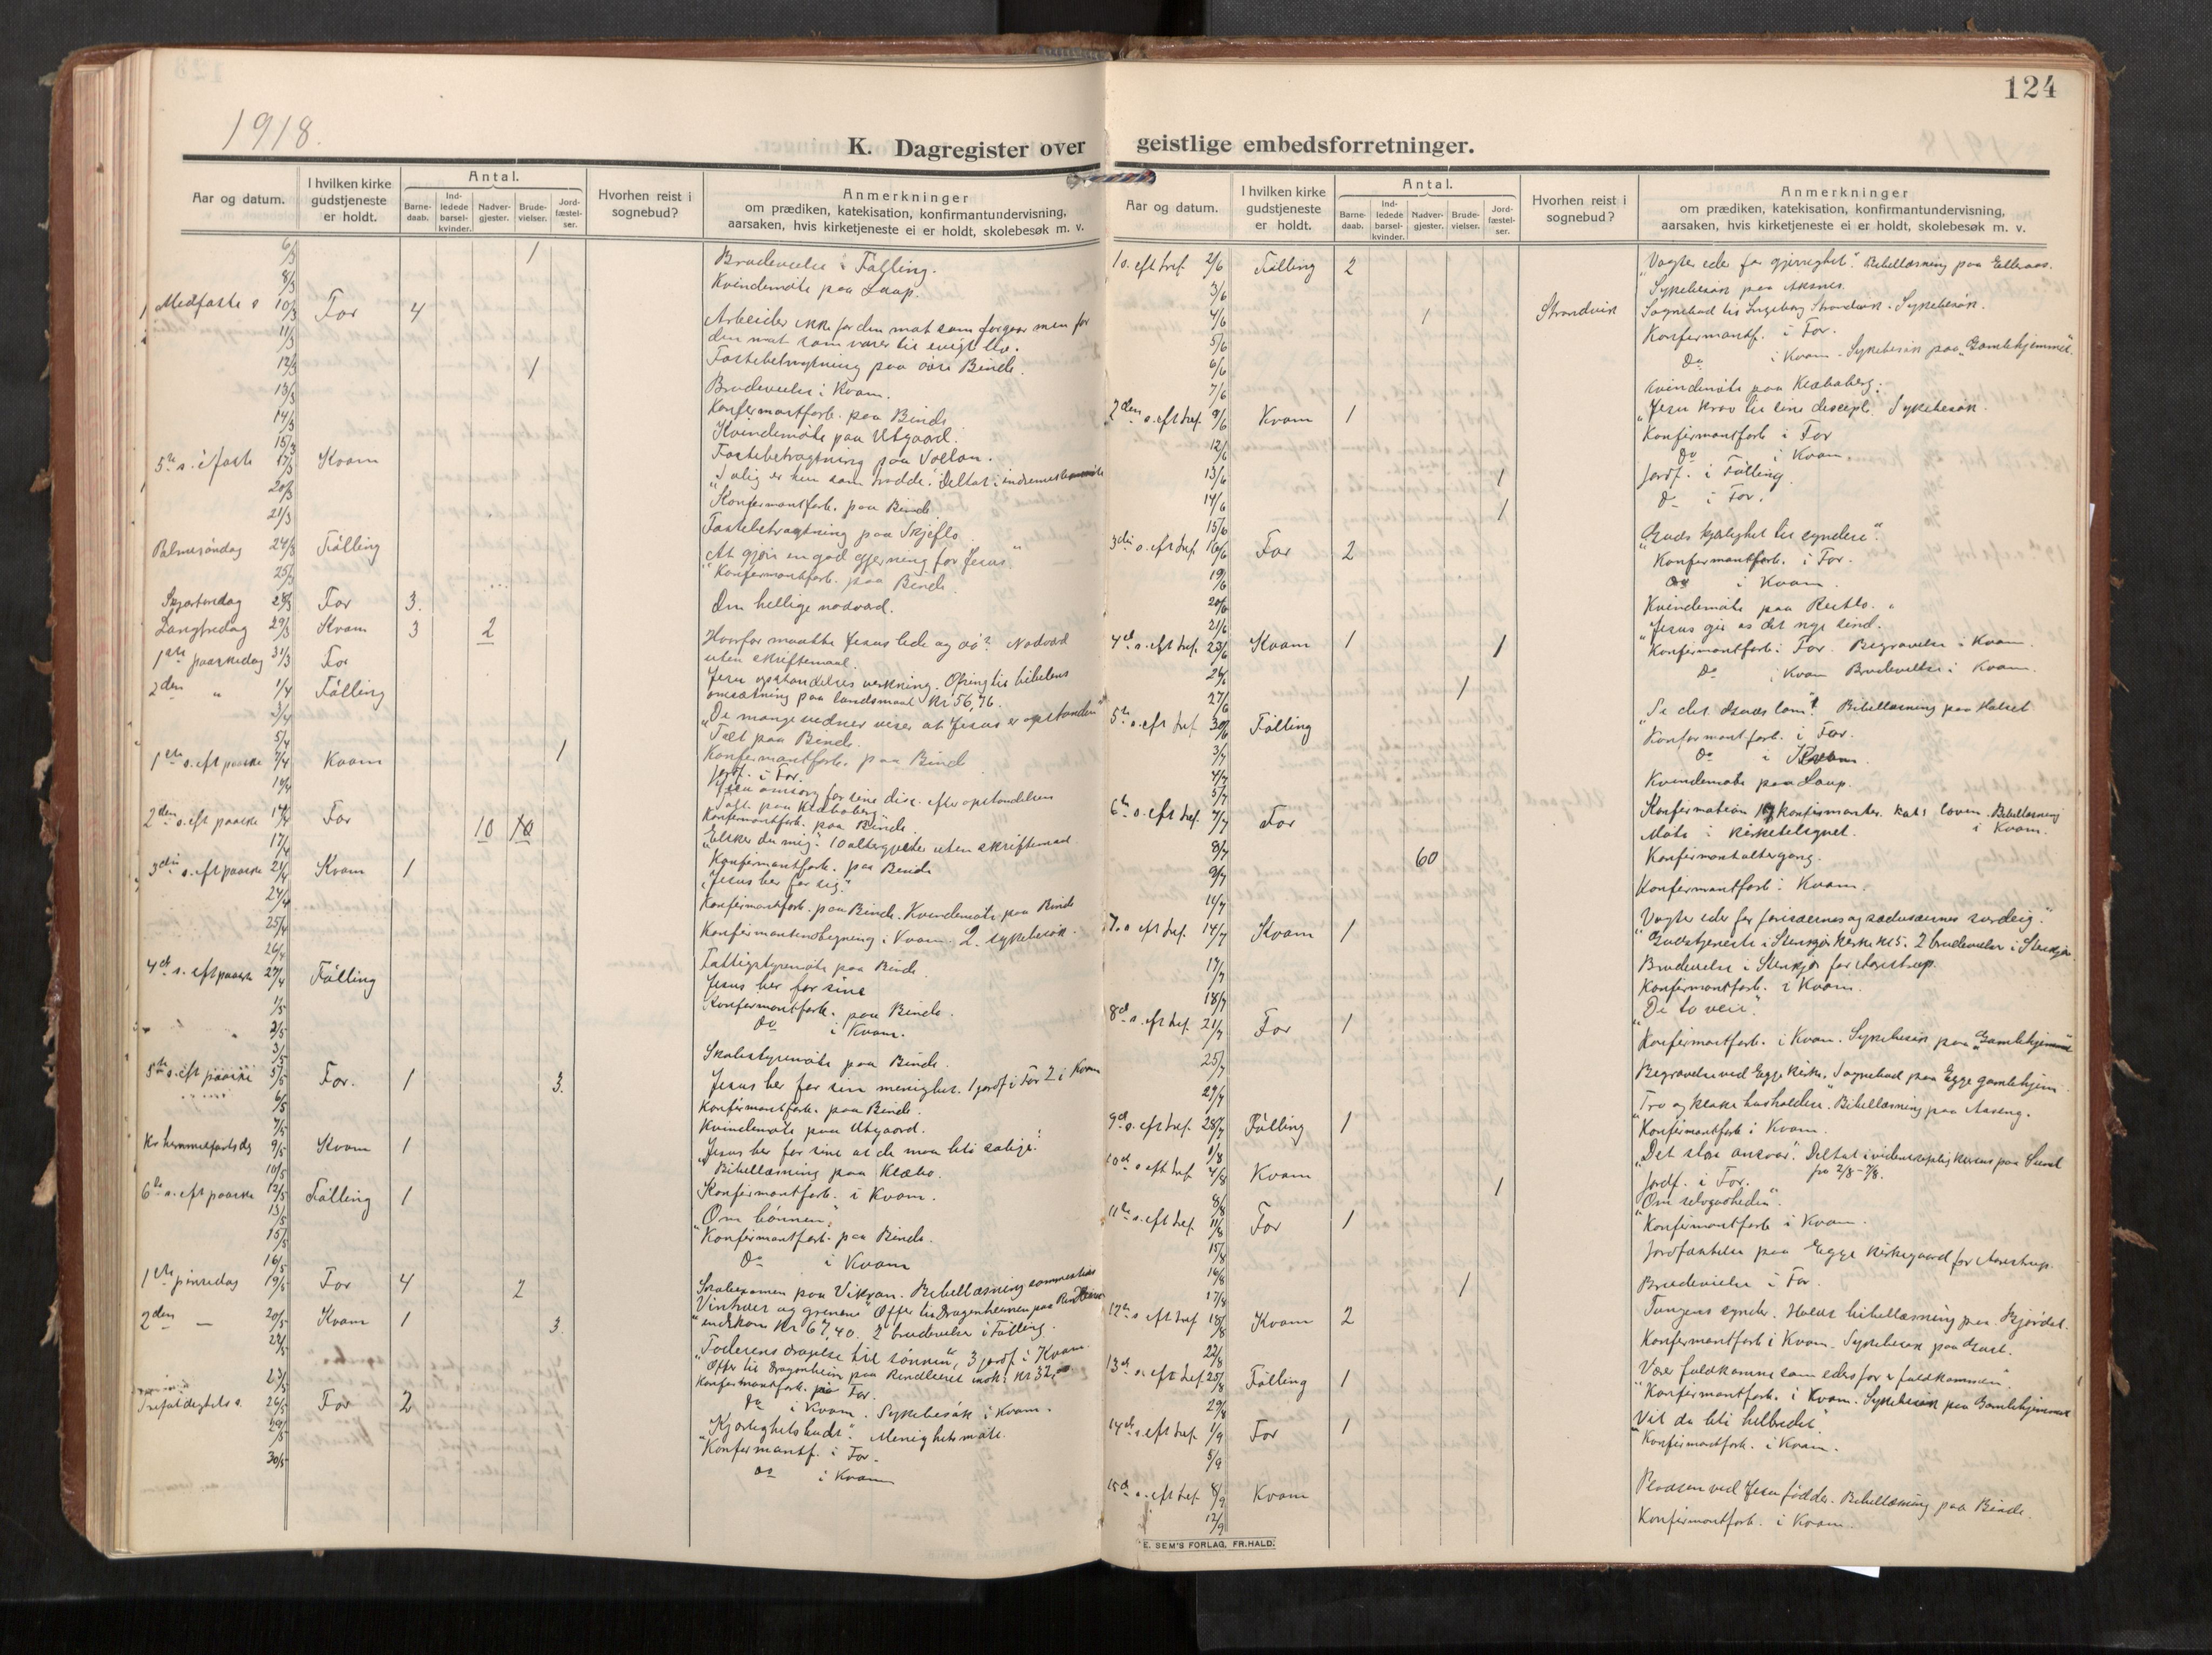 124
1918.
K. Dagregister over geistlige embedsforretninger.
Aar og datum.
I hvilken kirke gudstjeneste er holdt.
Antal.
Barne-daab.
Ind-ledede barsel-kvinder.
Nadver-gjester.
Brude-vielser.
Jord-fæstel-ser.
Hvorhen reist i sognebud?
Anmerkninger
om prædiken, katekisation, konfirmantundervisning,
aarsaken, hvis kirketjeneste ei er holdt, skolebesøk m. v.
6/3 1 Brudevielse i Følling.
8/3 Kvindemøte paa Laup.
Medfaste s 10/3 For 4 Arbeider ikke for den mat som forgaar men for
den mat som varer til evigt liv.
11/3 Fastebetragtning paa øvre Binde.
12/3 1 Brudevielse i Kvam.
13/3 Konfirmantforb. paa Binde
14/3 Kvindemøte paa Utgaard.
15/3 Fastebetragtning paa Vollan.
5te s. i faste 17/3 Kvam "Salig er hun som trodde. Deltat i
20/3 Konfirmantforb. paa Binde
21/3 Fastebetragtning paa Skjeflo
Palmesøndag 24/3 Følling At gjøre en god gjerning for Jesus"
25/3 Konfirmantforb. paa Binde
Skjærtorsdag 28/3 For 3. Den hellige nadverd.
Langfredag 29/3 Kvam 3 2 Hvorfor maatte Jesus lide og dø? Nadverd
uten skriftemaal.
1ste paaskedag 31/3 For Jesu opstandelses verkning. Ofring til bibelens
omsætning paa landsmaal kr 56,76.
2den " 1/4 Følling "De mange vidner viser at Jesus er opstanden"
Talt paa Binde.
3/4 Konfirmantforb. paa Bind
5/4 1 Jordf. i For.
1ste s. eft paaske 7/4 Kvam Jesu omsorg for sine disc. efter opstandelsen
Talt paa Klæbaberg
10/4 Konfirmantforb. paa Binde.
2den s. eft paaske 14/4 For 10 10 "Elsker du mig". 10 altergjester uten skriftemaal
17/4 Konfirmantforb. paa Binde
3die s. eft paaske 21/4 Kvam 1 "Jesus ber for sig."
24/4 Konfirmantforb. paa Binde. Kvindemøte paa Binde
25/4 i Kvam. 2 sykebesøk.
26/4 Fattigstyremøte paa Binde.
4de s. eft paaske 27/4 Følling Jesus ber for sine
1/5 Konfirmantforb. paa Binde.
2/5 Do i Kvam.
3/5 Skolestyremøte paa Binde.
5te s. eft paaske 5/5 For. 1 3. Jesus ber for sin menighet. 1 jordf i For 2 i Kvam
6/5 Konfirmantforb. paa Binde.
7/5 Kvindemøte paa Utgaard.
Kr. himmelfartsdag 9/5 Kvam 1 "Jesus ber for sine at de maa bli salige."
Bibellæsning paa Klæbo.
10/5 Konfirmantforb. i Kvam.
6te s. eft paaske 12/5 Følling 1 "Om bønnen."
13/5 Konfirmantforb. paa Binde.
15/5 Do i Kvam
16/5 Skoleexamen paa Vikran. Bibellæsning sammesteds
1ste pinsedag 19/5 For 4 2 Vintræet og grenene" Offer til Dragenheimen paa
indkom kr 67,40. 2 brudevielser i Følling.
2den — 20/5 Kvam 1 3. "Faderens dragelse til sønnen", 3 jordf. i Kvam.
Offer til Dragenheim paa Rindleiret indk. kr 32,00
22/5 Konfirmantforb. paa For.
23/5 Do i Kvam. Sykebesøk i Kvam.
Trefoldighets s. 26/5 For 2 "Kjærlighetsbudet". Menighetsmøte.
29/5 Konfirmantf. i For.
30/5 Do i Kvam
1 s. eft tref. 2/6 Følling 2 "Vogter eder for gjerrighet". Bibellæsning paa
3/6 Sykebesøk paa Aksnes.
4/6 1 Strandvik Sognebud til Ingeborg Strandvik. Sykebesøk.
5/6 Konfirmantf. i For.
6/6 Do i Kvam. Sykebesøk paa "Gamlehjemmet".
7/6 Kvindemøte paa Klæbaberg.
2den s. eft tref. 9/6 Kvam 1 "Jesu krav til sine discipl. Sykebesøk.
12/6 Konfirmantforb i For
13/6 Do i Kvam.
14/6 1 Jordf. i Følling.
15/6 1 Do i For.
3die s. eft tref. 16/6 For 2 "Guds kjærlighet til syndere".
19/6 Konfirmantforb. i For.
20/6 Do i Kvam.
21/6 Kvindemøte paa
4de s. eft tref. 23/6 Kvam 1 1 "Jesus gir os det nye sind.
26/6 Konfirmantforb. i For. Begravelse i Kvam.
27/6 1 Do i Kvam Brudevielse i Kvam.
5te s. eft tref 30/6 Følling "Se det Guds lam". Bibellæsning paa Halset
3/7 Konfirmantforb. i For.
4/7 Do i Kvam.
5/7 Kvindemøte paa Laup.
6te s. eft tref. 7/7 For Konfirmation konfirmanter. Bibellæsning
Møte i kirketelegnet. i Kvam.
8/7 60 Konfirmantaltergang.
9/7 Konfirmantforb i Kvam.
11/7
7. s eft tref. 14/7 Kvam 1 Vogter eder for farisæernes og sadusæernes surdeig."
Gudstjeneste i Stenkjær kirke kl 5. 2 brudevielser i Stenkjær.
17/7 Brudevielse i Stenkjær for Aarestrup.
18/7 Konfirmantforb. i Kvam.
8de s. eft tref. 21/7 For 1 "De to veie".
25/7 Konfirmantforb. i Kvam. Sykebesøk paa "Gamlehjemmet"
27/7 Begravelse ved Egge kirke, Sognebud paa Egge gamlehjem
9de s. eft tref. 28/7 Følling 1 "Tro og kloke husholdere". Bibellæsning paa Aaseng.
1/8 Konfirmantforb i Kvam.
10de s eft tref. 4/8 Kvam "Det store ansvar". Deltat i kursus paa Sund
fra 2/8 - 7/8.
8/8 1 Jordf. i For.
11te s. eft tref. 11/8 For 1 "Om selvgodheden".
15/8 Konfirmantforb i Kvam.
16/8 Jordfæstelse paa Egge kirkegaard for Aarestrup.
17/8 1 Brudevielse i For.
12te s eft tref 18/8 Kvam 2 Tungens synder. Holdt bibellæsning paa Gjørdal.
22/8 Konfirmantforb i Kvam. Sykebesøk paa
13de s. eft tref. 25/8 Følling 1 "Vær fuldkomne som eders far er fuldkommen".
29/8 Konfirmantforb. i Kvam. Sykebesøk paa Gamlehjemmet
14de s. eft tref. 1/9 For 1 "Vil du bli helbredet".
5/9 Konfirmantforb. i Kvam.
15de s. eft tref. 8/9 Kvam Pladsen ved Jesu fødder. Bibellæsning paa Binde.
12/9 Konfirmantforb. i Kvam.
E. SEM'S FORLAG, FR.HALD.